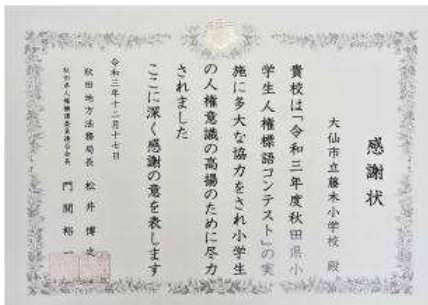 感謝状
大仙市立藤木小学校 殿
貴校は「令和三年度秋田県小
学生人権標語コンテスト」の実
施に多大な協力をされ小学生
の人権意識の高揚のために尽力
されました
ここに深く感謝の意を表します
令和三年十二月十七日
秋田地方法務局長 松井博之
秋田県人権擁護委員連合会長 門間裕一